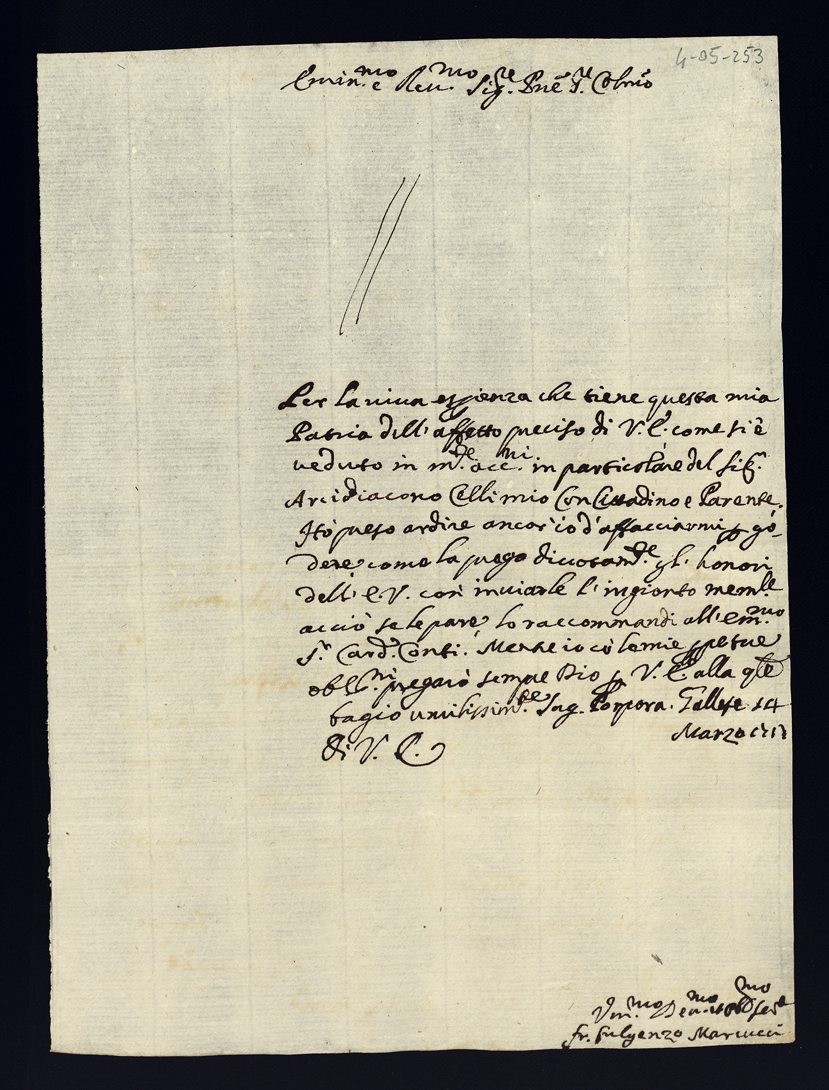 4-05-253
Emin.mo e Rev.mo Sig.re Pne P. Colmo
Per la viva esperienza che tiene questa mia
Patria dell' affetto preciso di V. E. come si è
veduto in m.te occ.ni in particolare del Sig.
Arcidiacono Celli mio Con Cittadino e Parente.
Hò preso ardire ancor' io d' affacciarmi p go-
dere come la prego divotam.te gl' honori
dell' E. V. con inviarle l' ingionto mem.le
acciò se le pare lo raccommandi all' Em.mo
S.r Card. Conti. Mentre io cò le mie ppetue
obbl.ni pregarò sempre Dio p V. E. alla q.le
bagio umilissim.te Sag. Porpora. Gallese 14
Marzo
Di V. E.
Um.mo Dev.mo et Obb.mo Ser.e
fr. Fulgenzo Marcucci